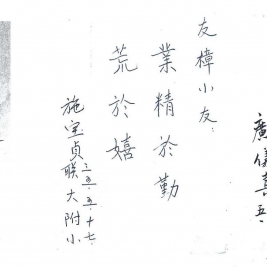 友樟小友：
業精於勤
荒於嬉
施宝贞
联大附小
三五、五、十七、
廣儀真